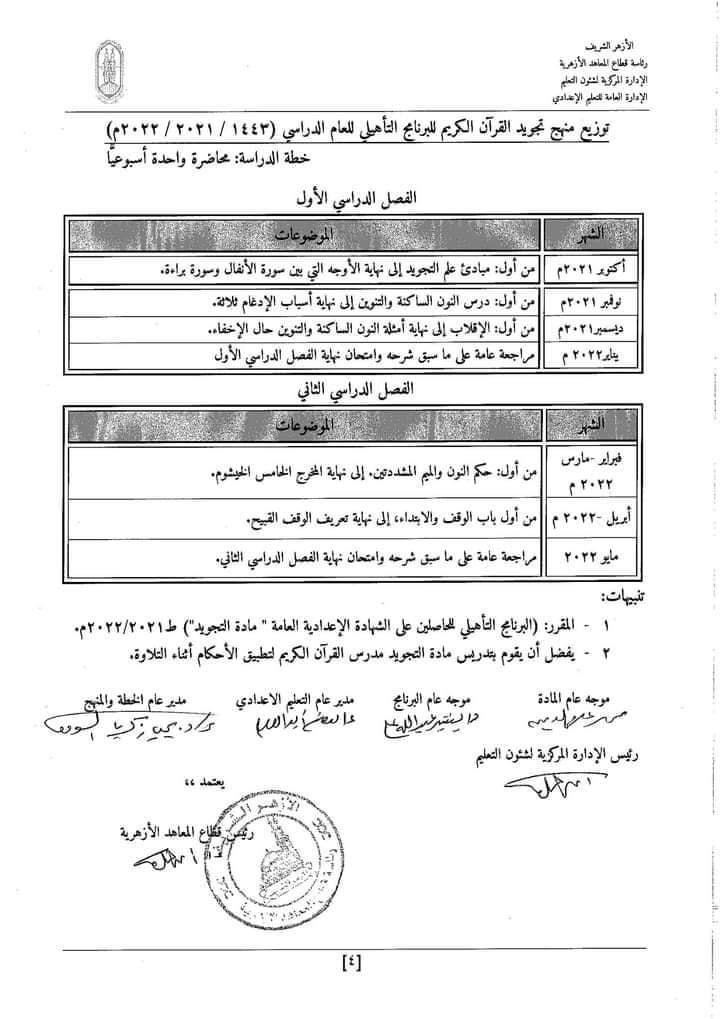 الأزهر الشريف
رئاسة قطاع المعاهد الأزهرية
الإدارة المركزية لشئون التعليم
الإدارة العامة للتعليم الإعدادي
توزيع منهج تجويد القرآن الكريم للبرنامج التأهيلي للعام الدراسي (١٤٤٣ / ٢٠٢١ / ٢٠٢٢م)
خطة الدراسة: محاضرة واحدة أسبوعيًّا
الفصل الدراسي الأول
الشهر الموضوعات
أكتوبر ٢٠٢١م من أول: مبادئ علم التجويد إلى نهاية الأوجه التي بين سورة الأنفال وسورة براءة.
نوفمبر ٢٠٢١م من أول: درس النون الساكنة والتنوين إلى نهاية أسباب الإدغام ثلاثة.
ديسمبر٢٠٢١م من أول: الإقلاب إلى نهاية أمثلة النون الساكنة والتنوين حال الإخفاء.
يناير٢٠٢٢ م مراجعة عامة على ما سبق شرحه وامتحان نهاية الفصل الدراسي الأول
الفصل الدراسي الثاني
الشهر الموضوعات
فبراير -مارس
٢٠٢٢ م من أول: حكم النون والميم المشددتين. إلى نهاية المخرج الخامس الخيشوم.
أبريل -٢٠٢٢ م من أول باب الوقف والابتداء، إلى نهاية تعريف الوقف القبيح.
مايو ٢٠٢٢ مراجعة عامة على ما سبق شرحه وامتحان نهاية الفصل الدراسي الثاني.
تنبيهات:
١ - المقرر: (البرنامج التأهيلي للحاصلين على الشهادة الإعدادية العامة " مادة التجويد") ط٢٠٢٢/٢٠٢١م.
٢ - يفضل أن يقوم بتدريس مادة التجويد مدرس القرآن الكريم لتطبيق الأحكام أثناء التلاوة.
موجه عام المادة موجه عام البرنامج مدير عام التعليم الاعدادي مدير عام الخطة والمنهج
رئيس الإدارة المركزية لشئون التعليم
يعتمد ،،
رئيس قطاع المعاهد الأزهرية
الأزهر الشريف
[٤]